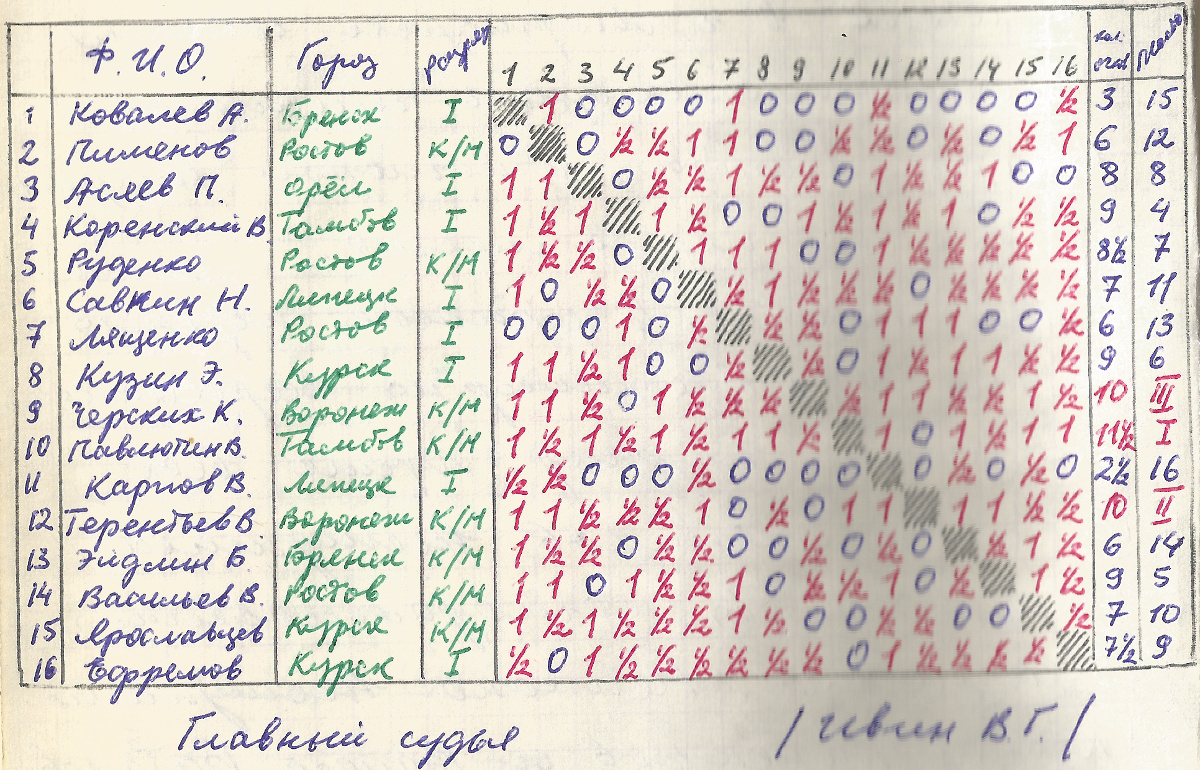 Ф.И.О. Город разряд 1 2 3 4 5 6 7 8 9 10 11 12 13 14 15 16 кол. очков место
1 Ковалев А. Брянск I 1 0 0 0 0 1 0 0 0 ½ 0 0 0 0 ½ 3 15
2 Пименов Ростов К/М 0 0 ½ ½ 1 1 0 0 ½ ½ 0 ½ 0 ½ 1 6 12
3 Асяев П. Орёл I 1 1 0 ½ ½ 1 ½ ½ 0 1 ½ ½ 1 0 0 8 8
4 Коренский В. Тамбов I 1 ½ 1 1 ½ 0 0 1 ½ 1 ½ 1 0 ½ ½ 9 4
5 Руденко Ростов К/М 1 ½ ½ 0 1 1 1 0 0 1 ½ ½ ½ ½ ½ 8½ 7
6 Савкин Н. Липецк I 1 0 ½ ½ 0 ½ 1 ½ ½ ½ 0 ½ ½ ½ ½ 7 11
7 Лященко Ростов I 0 0 0 1 0 ½ ½ ½ 0 1 1 1 0 0 ½ 6 13
8 Кузин Э. Курск I 1 1 ½ 1 0 0 ½ ½ 0 1 ½ 1 1 ½ ½ 9 6
9 Черских К. Воронеж К/М 1 1 ½ 0 1 ½ ½ ½ ½ 1 1 ½ ½ 1 ½ 10 III
10 Павлютин В. Тамбов К/М 1 ½ 1 ½ 1 ½ 1 1 ½ 1 0 1 ½ 1 1 11½ I
11 Карпов В. Липецк I ½ ½ 0 0 0 ½ 0 0 0 0 0 ½ 0 ½ 0 2½ 16
12 Терентьев В. Воронеж К/М 1 1 ½ ½ ½ 1 0 ½ 0 1 1 1 1 ½ ½ 10 II
13 Эйдлин Б. Брянск К/М 1 ½ ½ 0 ½ ½ 0 0 ½ 0 ½ 0 ½ 1 ½ 6 14
14 Васильев В. Ростов К/М 1 1 0 1 ½ ½ 1 0 ½ ½ 1 0 ½ 1 ½ 9 5
15 Ярославцев Курск К/М 1 ½ 1 ½ ½ ½ 1 ½ 0 0 ½ ½ 0 0 ½ 7 10
16 Ефремов Курск I ½ 0 1 ½ ½ ½ ½ ½ ½ 0 1 ½ ½ ½ ½ 7½ 9
Главный судья /Ивин В.Г./